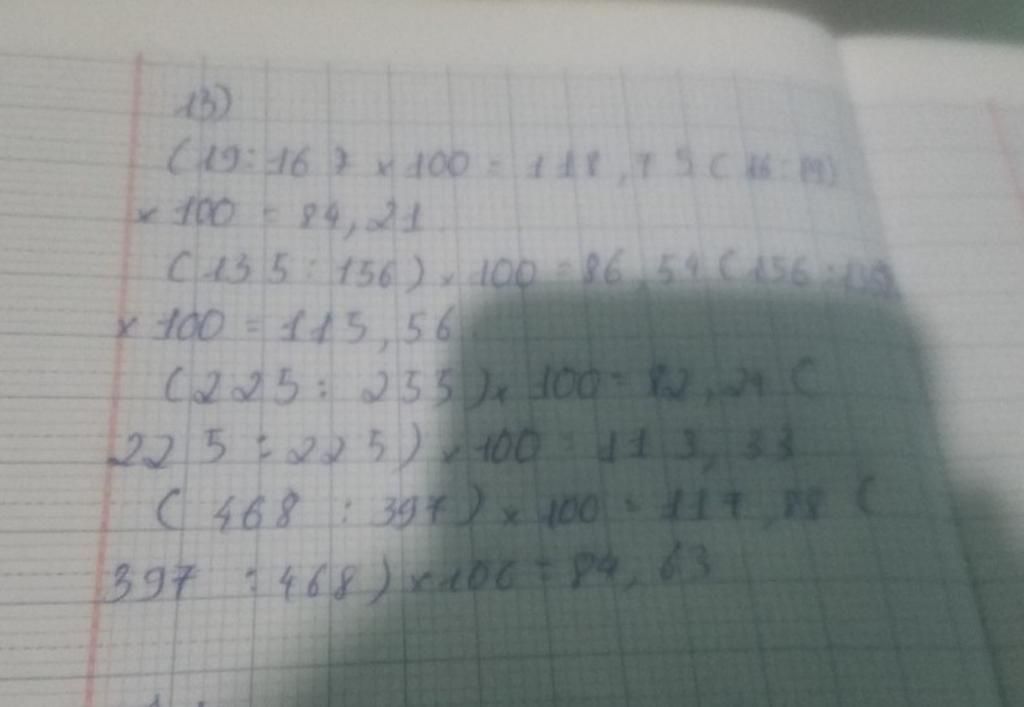 13)
(19:16) × 100 = 118,75 (16:19)
× 100 = 84,21
(135 : 156) × 100 = 86,54 (156 : 135)
× 100 = 115,56
(225 : 255) × 100 = 82,24 (
225 : 225) × 100 = 113,33
( 468 : 397) × 100 = 117,88 (
397 : 468) × 100 = 84,63